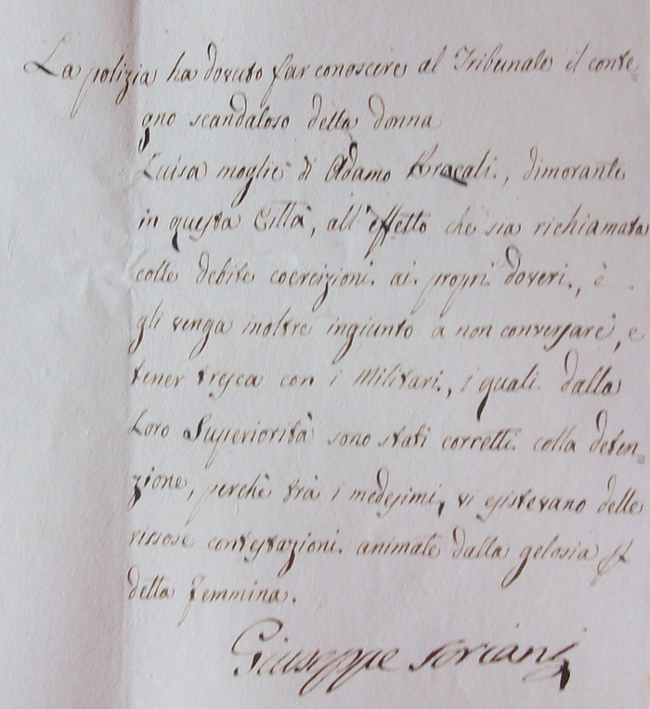 La polizia ha dovuto far conoscere al Tribunale il conte=
gno scandaloso della donna
Luisa moglie di Adamo Bracali, dimorante
in questa Città, all'effetto che sia richiamata
colle debite coercizioni ai propri doveri, è
gli venga inoltre ingiunto a non conversare, e
tener tresca con i Militari, i quali dalla
Loro Superiorità sono stati corretti colla deten=
zione, perchè trà i medesimi, vi esistevano delle
rissose contestazioni animate dalla gelosia
detta femmina.
Giuseppe Soriani